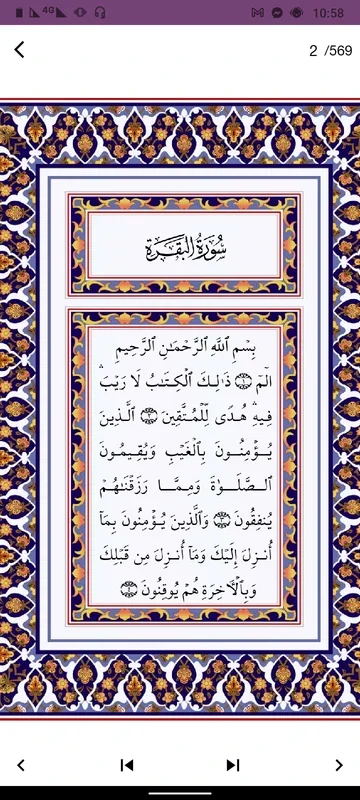 4G 10:58
2 /569
سُورَةُ البَقَرَةِ
بِسۡمِ ٱللَّهِ ٱلرَّحۡمَٰنِ ٱلرَّحِيمِ
الٓمٓ ١ ذَٰلِكَ ٱلۡكِتَٰبُ لَا رَيۡبَۛ
فِيهِۛ هُدٗى لِّلۡمُتَّقِينَ ٢ ٱلَّذِينَ
يُؤۡمِنُونَ بِٱلۡغَيۡبِ وَيُقِيمُونَ
ٱلصَّلَوٰةَ وَمِمَّا رَزَقۡنَٰهُمۡ
يُنفِقُونَ ٣ وَٱلَّذِينَ يُؤۡمِنُونَ بِمَآ
أُنزِلَ إِلَيۡكَ وَمَآ أُنزِلَ مِن قَبۡلِكَ
وَبِٱلۡأٓخِرَةِ هُمۡ يُوقِنُونَ ٤